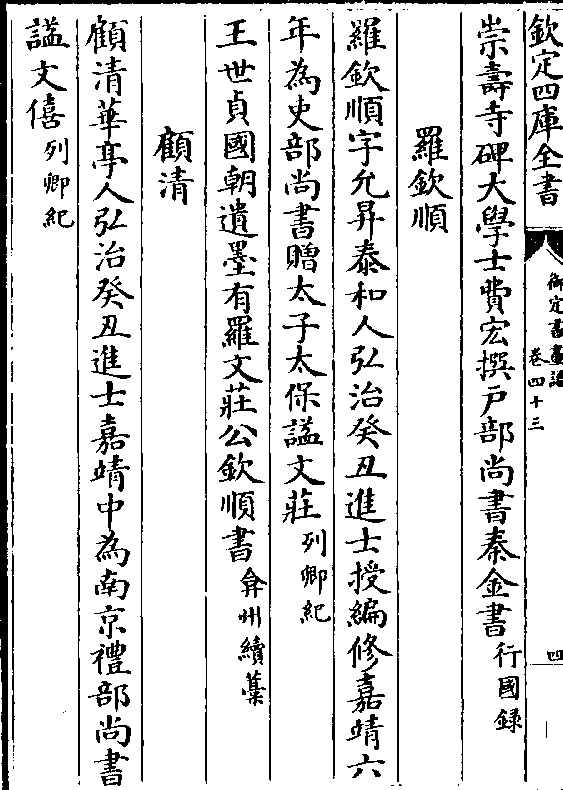 欽定四庫全書
御定書畫譜
卷四十三
四
崇壽寺碑大學士費宏撰戸部尚書秦金書行國錄
羅欽順
羅欽順字允昇泰和人弘治癸丑進士授編修嘉靖六
年為吏部尚書贈太子太保諡文莊列卿紀
王世貞國朝遺墨有羅文莊公欽順書弇州續藁
顧清
顧清華亭人弘治癸丑進士嘉靖中為南京禮部尚書
諡文僖列卿紀